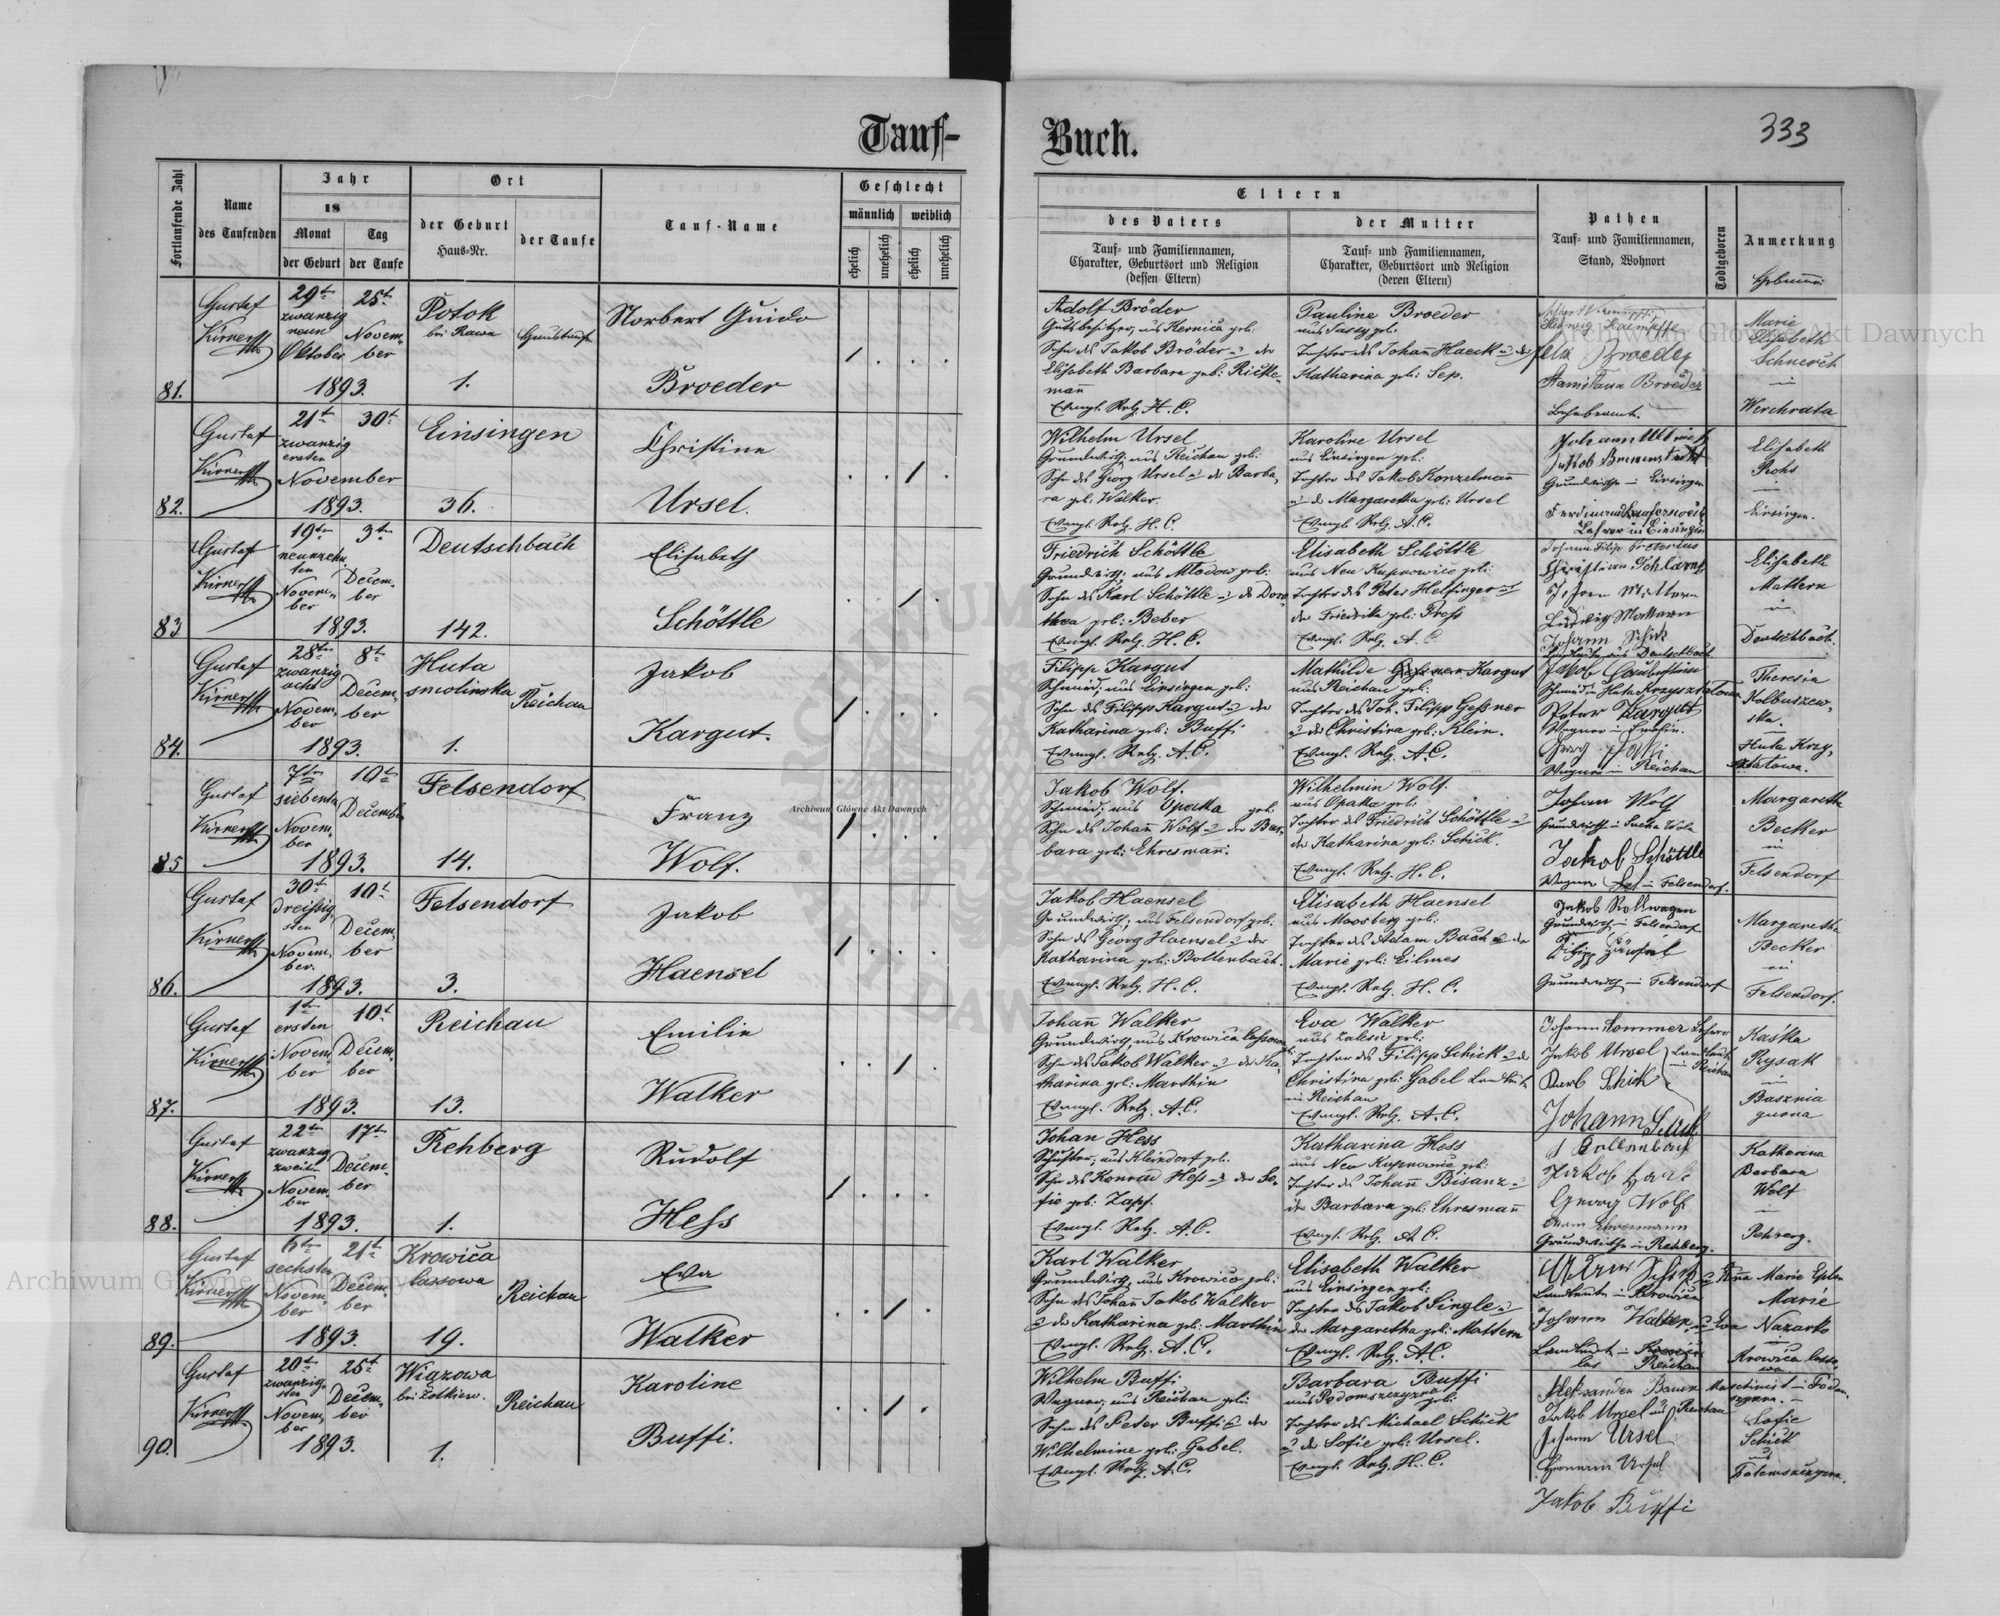 Tauf-
Buch.
333
Fortlaufende Zahl
Name
des Taufenden
Jahr
18
Monat
der Geburt
Tag
der Taufe
Ort
der Geburt
Haus-Nr.
der Taufe
Tauf-Name
Geschlecht
männlich
weiblich
ehelich
unehelich
ehelich
unehelich
Eltern
des Vaters
Tauf- und Familiennamen,
Charakter, Geburtsort und Religion
(dessen Eltern)
der Mutter
Tauf- und Familiennamen,
Charakter, Geburtsort und Religion
(deren Eltern)
Pathen
Tauf- und Familiennamen,
Stand, Wohnort
Todtgeboren
Anmerkung
81.
Gustaf
29t
zwanzig
neun
Oktober
1893.
25t
Novem-
ber
Potok
bei Rawa
1.
Norbert Guido
Broeder
Adolf Bröder
Gutsbesitzer, aus Hernica geb:
Sohn des Jakob Bröder u der
Elisabeth Barbara geb: Ricke-
mann
Evngl. Relg. H. C.
Pauline Broeder
Tochter des Johann Haeck u der
Katharina geb: Sep.
Hedwig
Felix Broeder
Stanislawa Broeder
Marie
Elisabeth
Schnerch
in
Werchrata
82.
Gustaf
21t
zwanzig
ersten
November
1893.
30t
Einsingen
36.
Christine
Ursel.
Wilhelm Ursel
Grundwirth, aus Reichau geb:
Sohn des Georg Ursel u der Barba-
ra geb. Walker.
Evngl. Relg. H. C.
Karoline Ursel
aus Einsingen geb:
Tochter des Jakob Konzelmann
u der Margaretha geb: Ursel
Evngl. Relg. A.C.
Johann
Jakob
Grundwirthe in Einsingen
Ferdinand
Lehrer in Einsingen
Elisabeth
Rohs
in
Einsingen.
83
Gustaf
19ten
neunzehn-
ten
Novem-
ber
1893.
3ten
Decem-
ber
Deutschbach
142.
Elisabeth
Schöttle
Friedrich Schöttle
Grundwirth, aus Mlodow geb:
Sohn des Karl Schöttle u der Doro-
thea geb: Beber
Evngl. Relg. H. C.
Elisabeth Schöttle
aus Neu Kupnowice geb:
Tochter des Peter Helfinger u
der Friedrike geb: Press
Evngl. Relg. A. C.
Christian
Johann Mattern
Ludwig Mattern
Johann Schick
Elisabeth
Mattern
in
Deutschbach.
84.
Gustaf
28ten
zwanzig
acht
Novem-
ber
1893.
8t
Decem-
ber
Huta
smolinska
1.
Reichau
Jakob
Kargut.
Filipp Kargut
Schmied, aus Einsingen geb:
Sohn des Filipp Kargut u der
Katharina geb: Buffi
Evngl. Relg. A.C.
Mathilde Kargut
aus Reichau geb:
Tochter des Joh. Filipp Geßner
u der Christina geb: Klein.
Evngl. Relg. A.C.
Jakob
Peter Kargut
Wagner in Reichau
Theresia
Kolbuszew-
ska.
Huta Krzy-
sztalowa.
85
Gustaf
7ten
siebente
Novem-
ber
1893.
10t
December
Felsendorf
14.
Franz
Wolf.
Jakob Wolf.
Schmied, aus Opaka geb:
Sohn des Johann Wolf u der Bar-
bara geb: Ehresmann.
Wilhelmin Wolf.
aus Opaka geb:
Tochter des Friedrich Schöttle u
der Katharina geb: Schick.
Evngl. Relg. H. C.
Johan Wolf
Grundwirth in Sucha Wola
Jakob Schöttle
Margaretha
Becker
in
Felsendorf
86.
Gustaf
30t
dreißig
sten
Novem-
ber.
1893.
10t
Decem-
ber
Felsendorf
3.
Jakob
Haensel
Jakob Haensel
Grundwirth, aus Felsendorf geb:
Sohn des Georg Haensel u der
Katharina geb: Bollenbach.
Evngl. Relg. H. C.
Elisabeth Haensel
aus Moosberg geb:
Tochter des Adam Bach u der
Marie geb: Eilmes
Evngl. Relg. H. C.
Jakob Rollwagen
Grundwirth in Felsendorf
Grundwirth in Felsendorf
Margaretha
Becker
in
Felsendorf.
87.
Gustaf
1ten
ersten
Novem-
ber
1893.
10t
Decem-
ber
Reichau
13.
Emilie
Walker
Johann Walker
Grundwirth, aus Krowica lassowa
Sohn des Jakob Walker u der Ka-
tharina geb: Marthin
Evngl. Relg. A.C.
Eva Walker
aus Zalesie geb:
Tochter des Filipp Schick u der
Christina geb: Gabel
in Reichau
Evngl. Relg. A.C.
Johann Sommer Lehrer
Jakob Ursel
Karl Schick
in Reichau
Johann Schick
Kaśka
Rysak
in
Basznia
88.
Gustaf
22ten
zwanzig
zweiten
Novem-
ber
1893.
17t
Decem-
ber
Rehberg
1.
Rudolf
Hess
Johan Hess
Schuster, aus Kleindorf geb:
Sohn des Konrad Hess u der So-
fie geb: Zapf.
Evngl. Relg. A.C.
Katharina Hess
aus Neu Kupnowice geb:
Tochter des Johann Bisanz u
der Barbara geb: Ehresmann
Evngl. Relg. A C.
Jakob
Georg Wolf
Grundwirthe in Rehberg.
Katharina
Barbara
Wolf
in
Rehberg.
89.
Gustaf
6ten
sechsten
Novem-
ber
1893.
21t
Decem-
ber
Krowica
lassowa
19.
Reichau
Eva
Walker
Karl Walker
Grundwirth, aus Krowica geb:
Sohn des Johann Jakob Walker
u der Katharina geb: Marthin
Evngl. Relg. A.C.
Elisabeth Walker
aus Einsingen geb:
Tochter des Jakob Single u
der Margaretha geb: Mattern
Evngl. Relg. A.C.
Landleute in Krowica
Johann Walker u Eva
Reichau
Marie
Nazarko
Krowica lasso-
wa
90.
Gustaf
20ten
zwanzig-
sten
Novem-
ber
1893.
25t
Decem-
ber
Wiązowa
bei Żołkiew.
1.
Reichau
Karoline
Buffi.
Wilhelm Buffi
Wagner, aus Reichau geb:
Sohn des Peter Buffi u der
Wilhelmine geb: Gabel.
Evngl. Relg. A.C.
Barbara Buffi
Tochter des Michael Schick
u der Sofie geb: Ursel.
Evngl. Relg. H. C.
Aleksander Bauer Maschinist
Jakob Ursel aus Reichau
Johann Ursel
Hermann Ursel
Jakob Buffi
Sofie
Schick
aus
Archiwum Główne Akt Dawnych
Archiwum Główne Akt Dawnych
Archiwum Główne Akt Dawnych